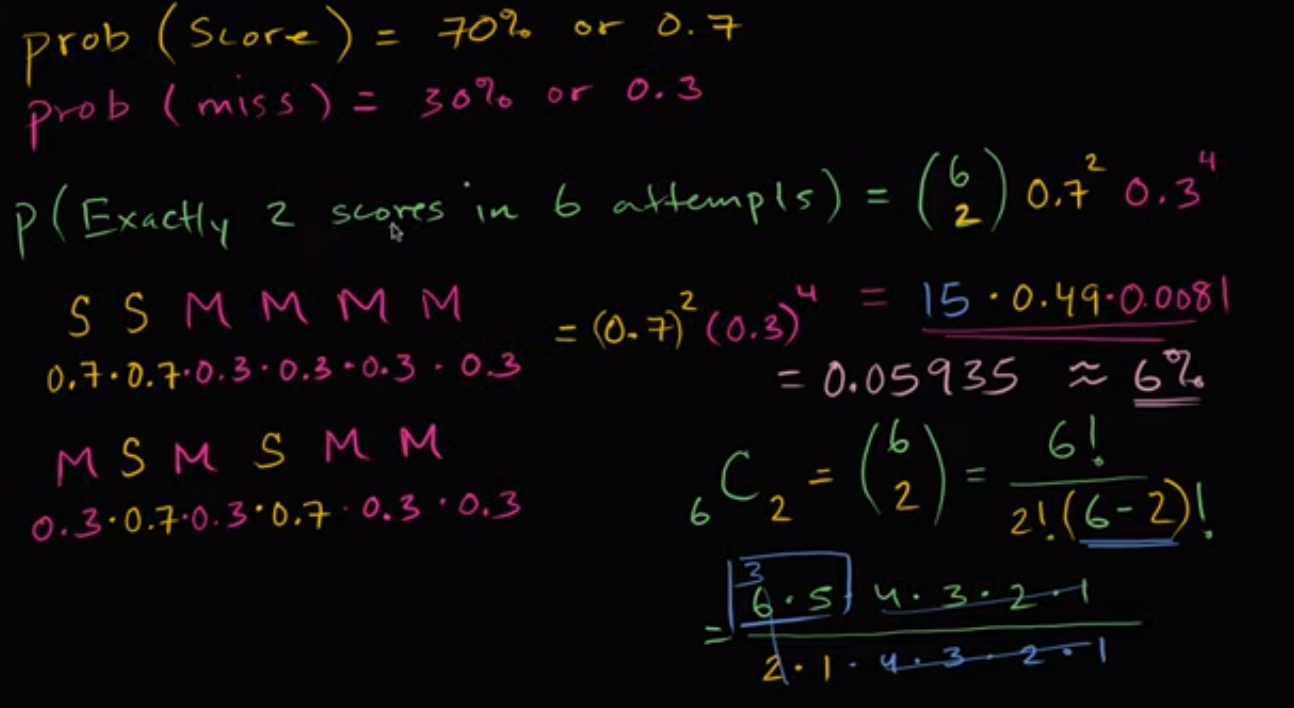 prob (Score) = 70% or 0.7
prob (miss) = 30% or 0.3
P(Exactly 2 scores in 6 attempts) = (6 2) 0.7² 0.3⁴
S S M M M M
0.7·0.7·0.3·0.3·0.3·0.3
= (0.7)² (0.3)⁴
= 15 · 0.49 · 0.0081
= 0.05935 ≈ 6%
M S M S M M
0.3·0.7·0.3·0.7·0.3·0.3
₆C₂ = (6 2) = 6! / 2!(6-2)!
3
= 6·5 4·3·2·1 / 2·1·4·3·2·1